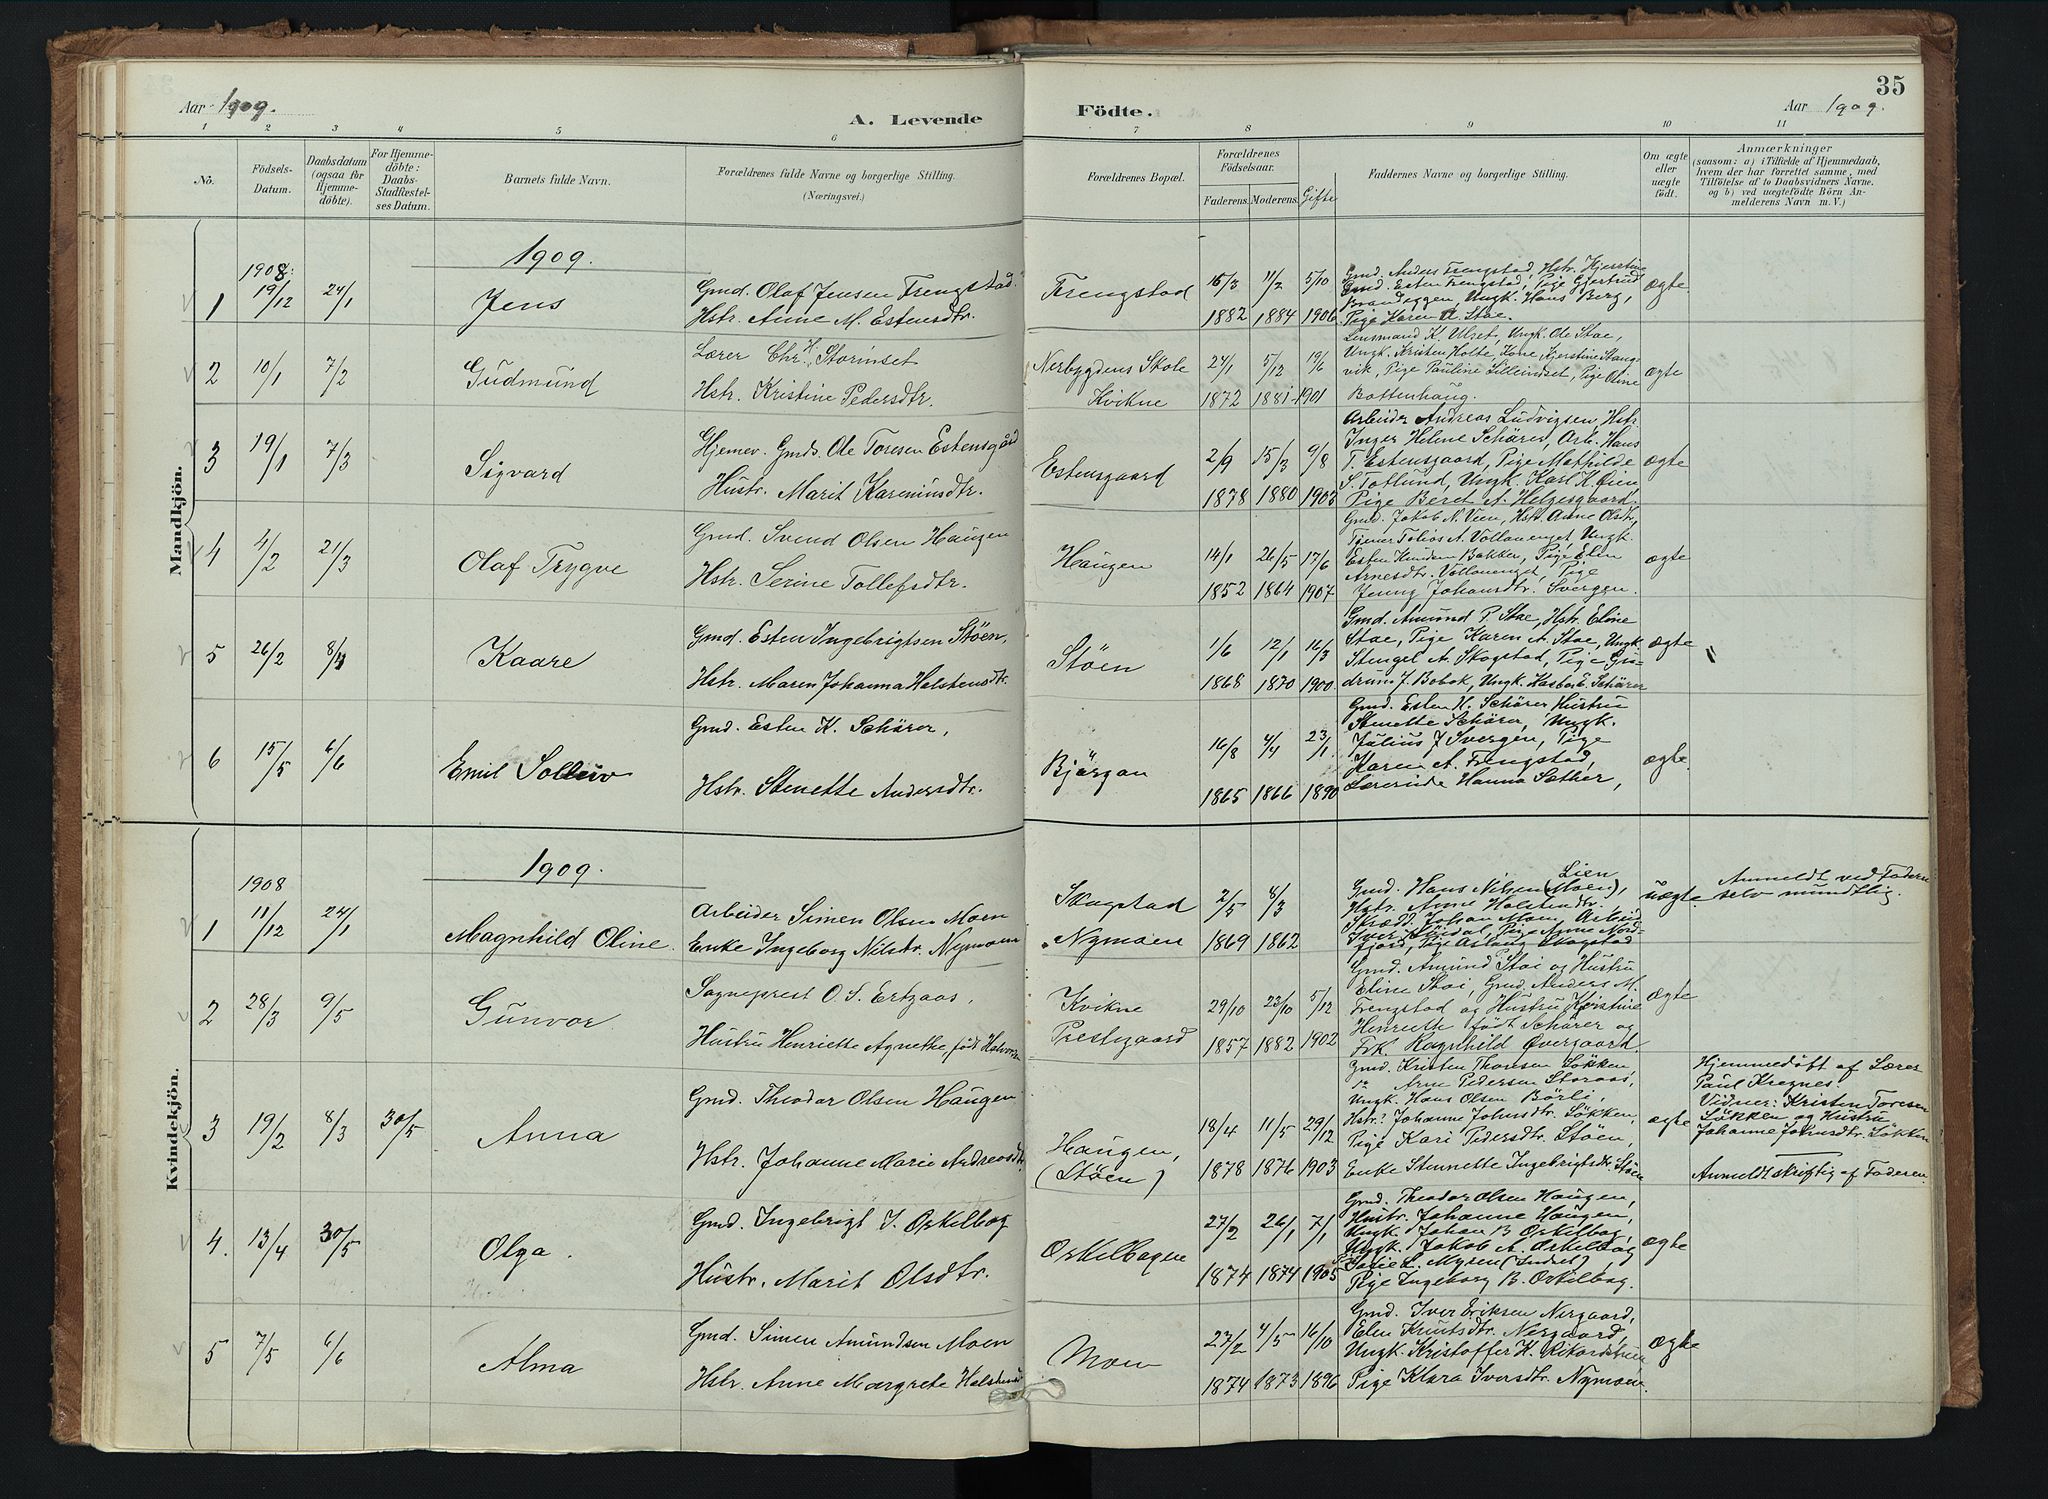 Aar 1909.
A. Levende
Födte.
Aar 1909.
35
1 2 3 4 5 6 7 8 9 10 11
No.
Födsels-
Datum.
Daabsdatum
(ogsaa för
Hjemme-
döbte).
For Hjemme-
döbte:
Daabs-
Stadfæstel-
ses Datum.
Barnets fulde Navn.
Forældrenes fulde Navne og borgerlige Stilling.
(Næringsvei.)
Forældrenes Bopæl.
Forældrenes
Födselsaar.
Faderens. Moderens. Gifte
Faddernes Navne og borgerlige Stilling.
Om ægte
eller
uægte
födt.
Anmærkninger
(saasom: a) i Tilfælde af Hjemmedaab,
hvem der har forrettet samme, med
Tilföielse af to Daabsvidners Navne,
og b) ved uægtefödte Börn An-
melderens Navn m. V.)
Mandkjön.
1909.
1908:
1 19/12 24/1
Jens
Gmd. Olaf Jensen Frengstad.
Hstr. Anne M. Estensdtr.
Frengstad
15/3 11/2 5/10
1882 1884 1906
Gmd. Anders Frengstad, Hstr. Kjerstine
Gmd. Esten Frengstad, Pige Gjertrud
Brandeggen, Ungk. Hans Berg,
Pige Karen A. Stae.
ægte
2 10/1 7/2
Gudmund
Lærer Chr. H. Storinset
Hstr. Kristine Pedersdtr.
Nerbygdens Skole
Kvikne
24/1 5/12 19/6
1872 1881 1901
Lensmand K. Ulset, Ungk. Ole Stae,
Ungk. Kristen Holte, Kone Kjerstine Stang-
vik, Pige Pauline Lilleindset, Pige Oline
Bottenhaug.
ægte
3 19/1 7/3
Sigvard
Hjemev. Gmds. Ole Toresen Estensgård
Hustr. Marit Kareniusdtr.
Estensgaard
2/9 15/3 9/8
1878 1880 1903
Arbeider Andreas Ludvigsen, Hstr.
Inger Helene Schärer, Arb. Hans
T. Estensgaard, Pige Mathilde
S. Totlund, Ungk. Karl K. Øien,
Pige Beret A. Helgesgaard.
ægte
4 4/2 21/3
Olaf Trygve
Gmd. Svend Olsen Haugen
Hstr. Serine Tollefsdtr.
Haugen
14/1 26/5 17/6
1852 1864 1907
Gmd. Jakob N. Veen, Hstr. Anne Olsdtr,
Tjener Tobias A. Vollanenget, Ungk.
Esten Knudsen Bakken, Pige Elen
Arnesdtr. Vollanenget, Pige
Jenny Johansdtr. Svergen.
ægte
5 26/2 8/4
Kaare
Gmd. Esten Ingebrigtsen Støen,
Hstr. Maren Johanna Halstensdtr.
Støen
1/6 12/1 16/3
1868 1870 1900
Gmd. Amund P. Stae, Hstr. Eline
Stae, Pige Karen A. Stae, Ungk.
Stengel A. Skogstad, Pige Gu-
drun J. Bobak, Ungk. E. Schärer
ægte
6 15/5 6/6
Emil Solleiv
Gmd. Esten H. Schärer,
Hstr. Stenette Andersdtr.
Bjørgan
16/8 4/4 23/1
1865 1866 1890
Gmd. Esten H. Schärer Hustru
Stenette Schärer, Ungk.
Julius J. Svergen, Pige
Karen A. Frengstad,
Lærerinde Hanna Sæther,
ægte.
Kvindekjön.
1909.
1908
1 11/12 24/1
Magnhild Oline.
Arbeider Simen Olsen Moen
Enke Ingeborg Nilsdtr. Nymoen
Skogstad
Nymoen
2/5 4/3
1869 1862
Lien
Gmd. Hans Nilsen (Moen),
Hstr. Anne Halstendtr.
Skredd. Johan Moen, Arbeid.
Iver Løvdal, Pige Anne Nord-
fjord, Pige Aslaug Skogstad
uægte.
Anmeldt ved Faderen
selv mundtlig.
2 28/3 9/5
Gunvor
Sogneprest O. S. Ertzaas,
Hustru Henriette Agnethe, født Halvorsen
Kvikne
Prestegaard
29/10 23/10 5/12
1857 1882 1902
Gmd. Amund Stai og Hustru
Eline Stai, Gmd. Anders M.
Frengstad og Hustru Kjerstine
Henriette født Schärer og
Frk. Ragnhild Øvergaard.
ægte
3 19/2 8/3 30/5
Anna
Gmd. Theodor Olsen Haugen
Hstr. Johanne Marie Andreasdtr.
Haugen,
(Støen)
18/4 11/5 29/12
1878 1876 1903
Gmd. Kristen Thoresen Løkken,
do Arne Pedersen Storaas,
Ungk. Hans Olsen Börli,
Hstr. Johanne Johnsdtr. Løkken,
Pige Kari Pedersdtr. Støen,
Enke Stennette Ingebrigtsdtr. Støen
ægte
Hjemmedøbt af Lærer
Paul Kregnes.
Vidner: Kristen Toresen
Løkken og Hustru
Johanne Johnsdtr. Løkken
Anmeldt skriftlig af Faderen.
4. 13/4 30/5
Olga.
Gmd. Ingebrigt J. Orkilbog
Hustr. Marit Olsdtr.
Orkelbogen
27/2 26/1 7/1
1874 1874 1905
Gmd. Theodor Olsen Haugen,
Hustr. Johanne Haugen,
Ungk. Johan B. Orkilbog,
Ungk. Jakob A. Orkilbog
L. Myren (Indset)
Pige Ingeborg B. Orkilbog.
ægte
5 7/5 6/6
Alma
Gmd. Simen Amundsen Moen
Hstr. Anne Margrete Halstensdtr
Moen
27/2 4/5 16/10
1874 1873 1896
Gmd. Iver Eriksen Nergaard,
Elen Knutsdtr. Nergaard,
Ungk. Kristoffer K. Rikardstuen
Pige Klara Iversdtr. Nymoen.
ægte